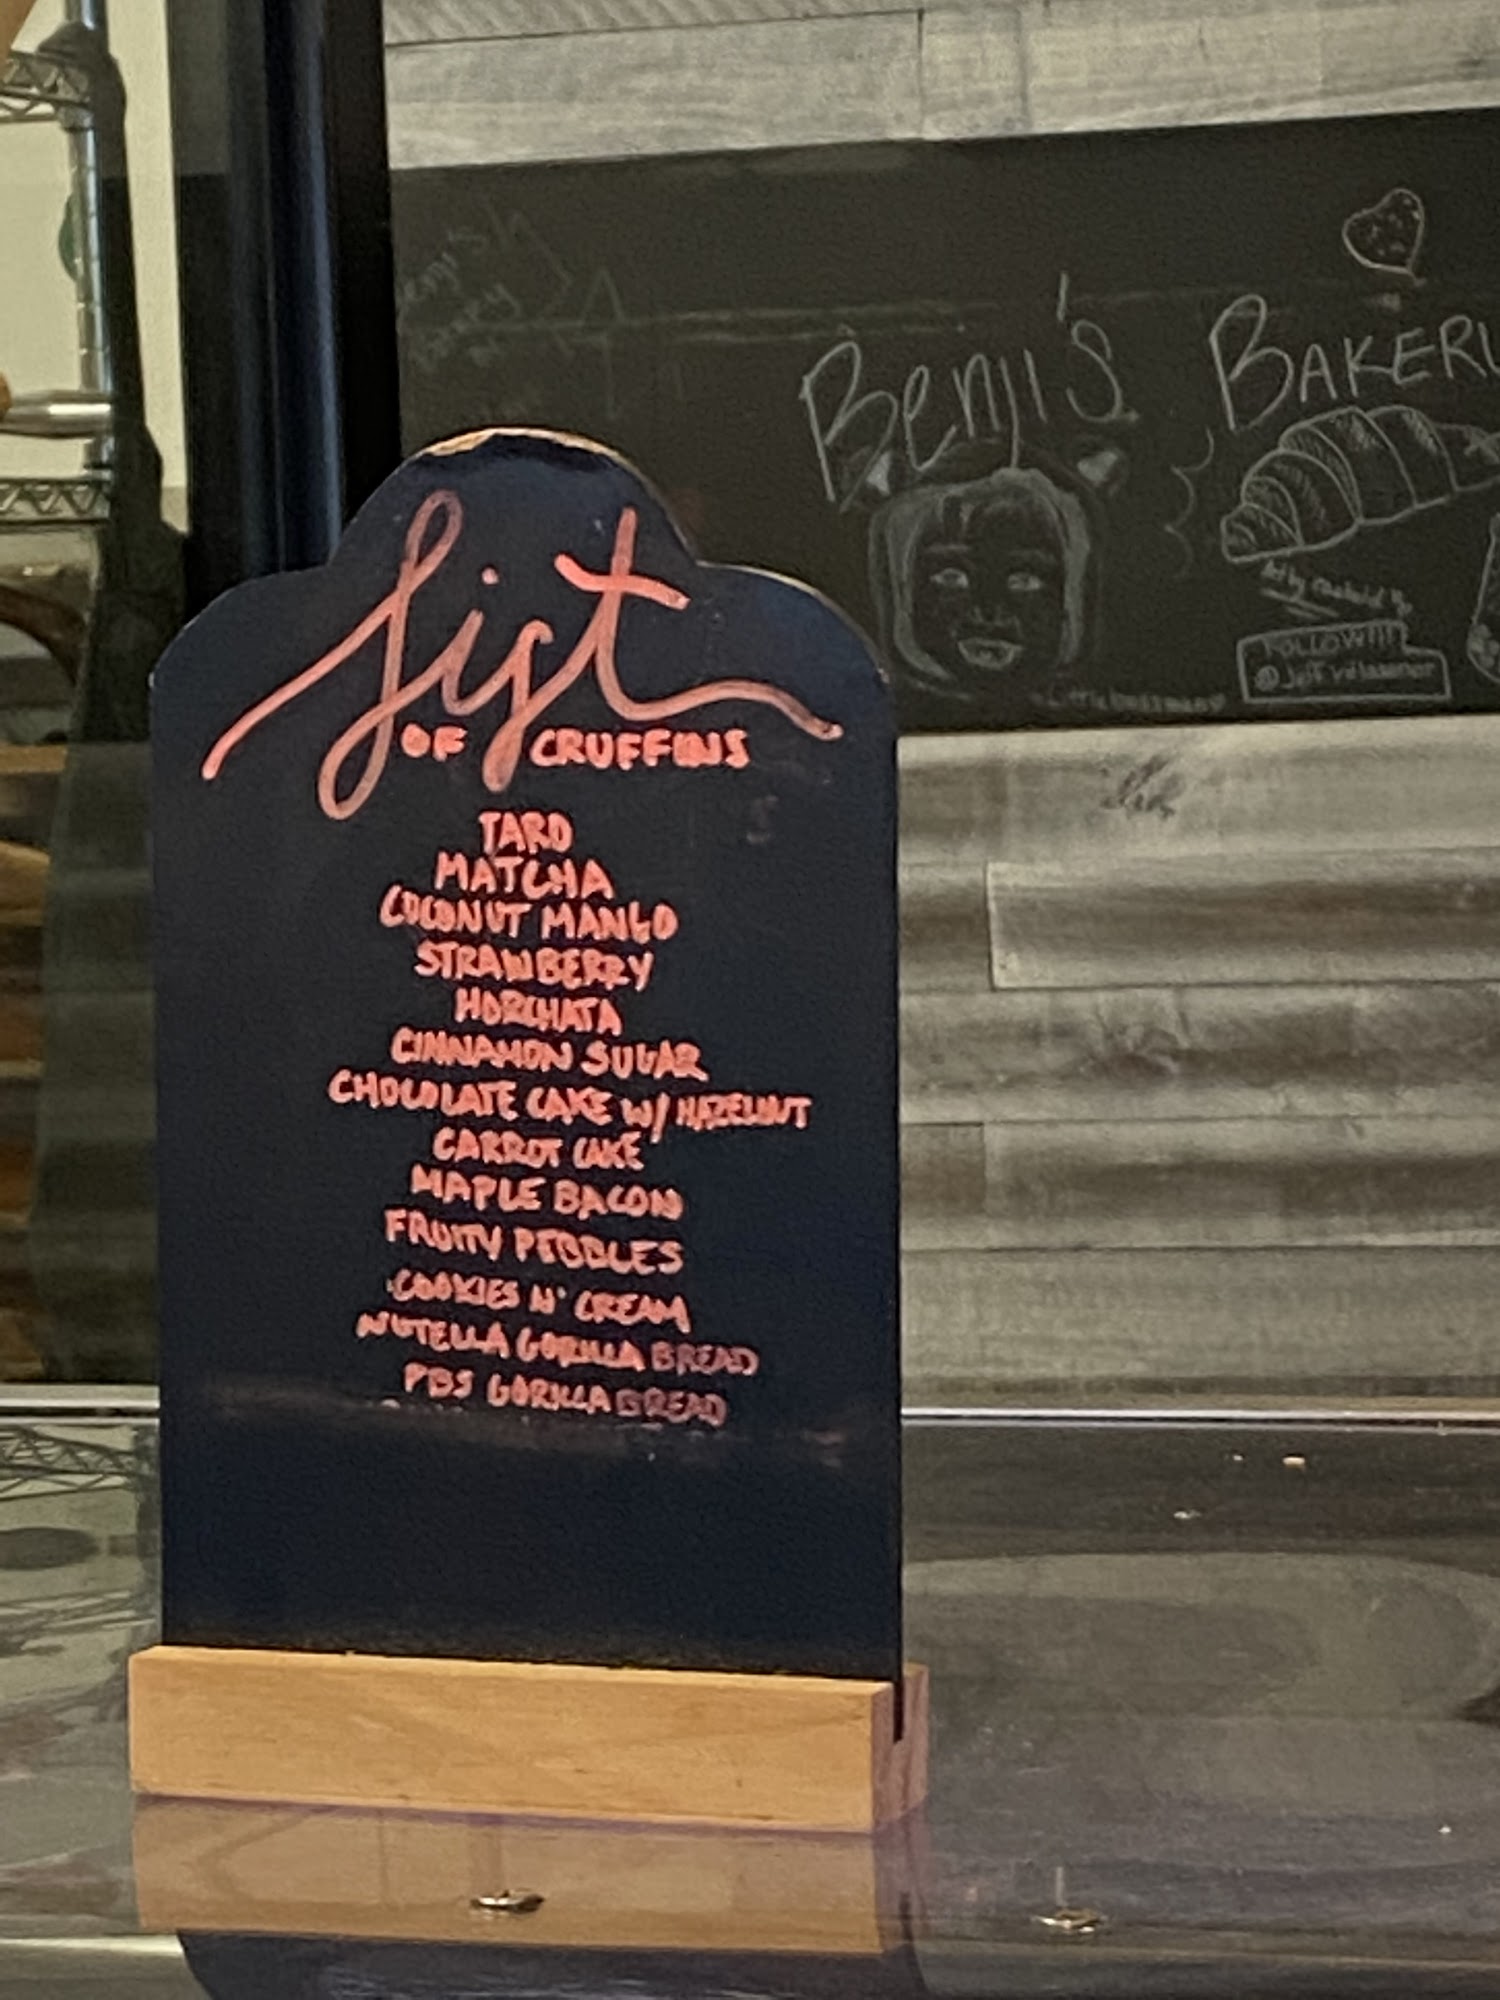 Benji's BAKERY
FOLLOW!!!
@Jeff villasenor
List
OF CRUFFINS
TARO
MATCHA
COCONUT MANGO
STRAWBERRY
HORCHATA
CINNAMON SUGAR
CHOCOLATE CAKE W/ HAZELNUT
CARROT CAKE
MAPLE BACON
FRUITY PEBBLES
COOKIES N' CREAM
NUTELLA GORILLA BREAD
PBS GORILLA BREAD